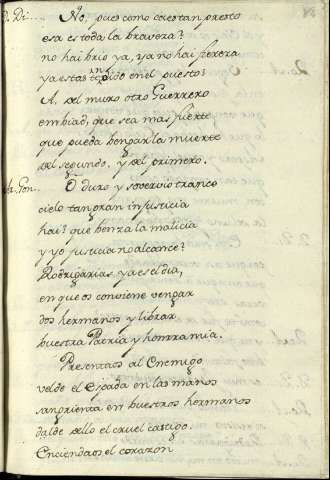 D. Di.... No, pues como caestan presto
esa es toda la braveza?
no hai brio ya, ya no hai fiereza
ya estas tendido en el puesto?
A, del muro otro Guerrero
embiad, que sea mas fuerte
que pueda bengar la muerte
del segundo, y del primero.
Ar. Gon.. O duro y sovervio trance
cielo tan gran injusticia
hai? que benza la malicia
y yo justicia no alcance?
Rodrigarias ya es el dia,
en que os conviene vengar
dos hermanos y librar
buestra Patria y honrra mia.
Presentaos al Enemigo
velde el Espada en las manos
sangrienta en buestros hermanos
dalde dello el cruel castigo.
Enciendaos el corazon